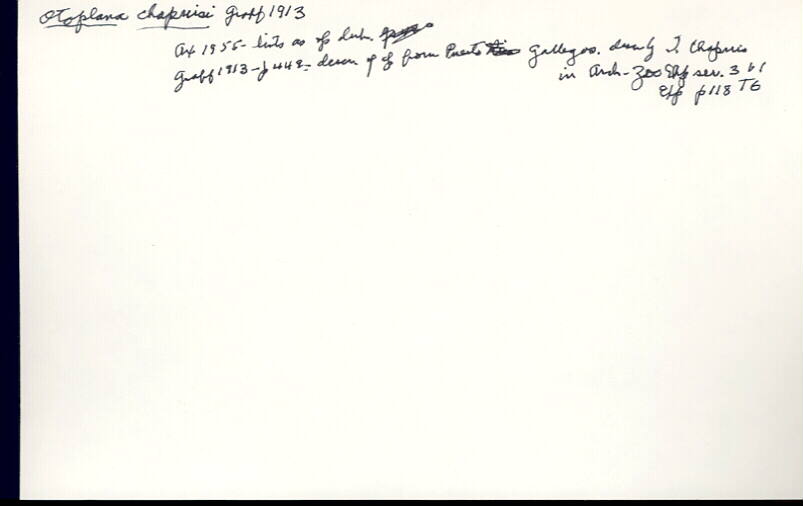 Otoplana chapuisi Graff 1913
Ax 1955 - lists as sp dub.
Graff 1913 - p 449 - descr of sp from Puerto Gallegos. by T. Chapuis
in Arch - Zoo Exp ser. 3 b1
Exp p118 T6